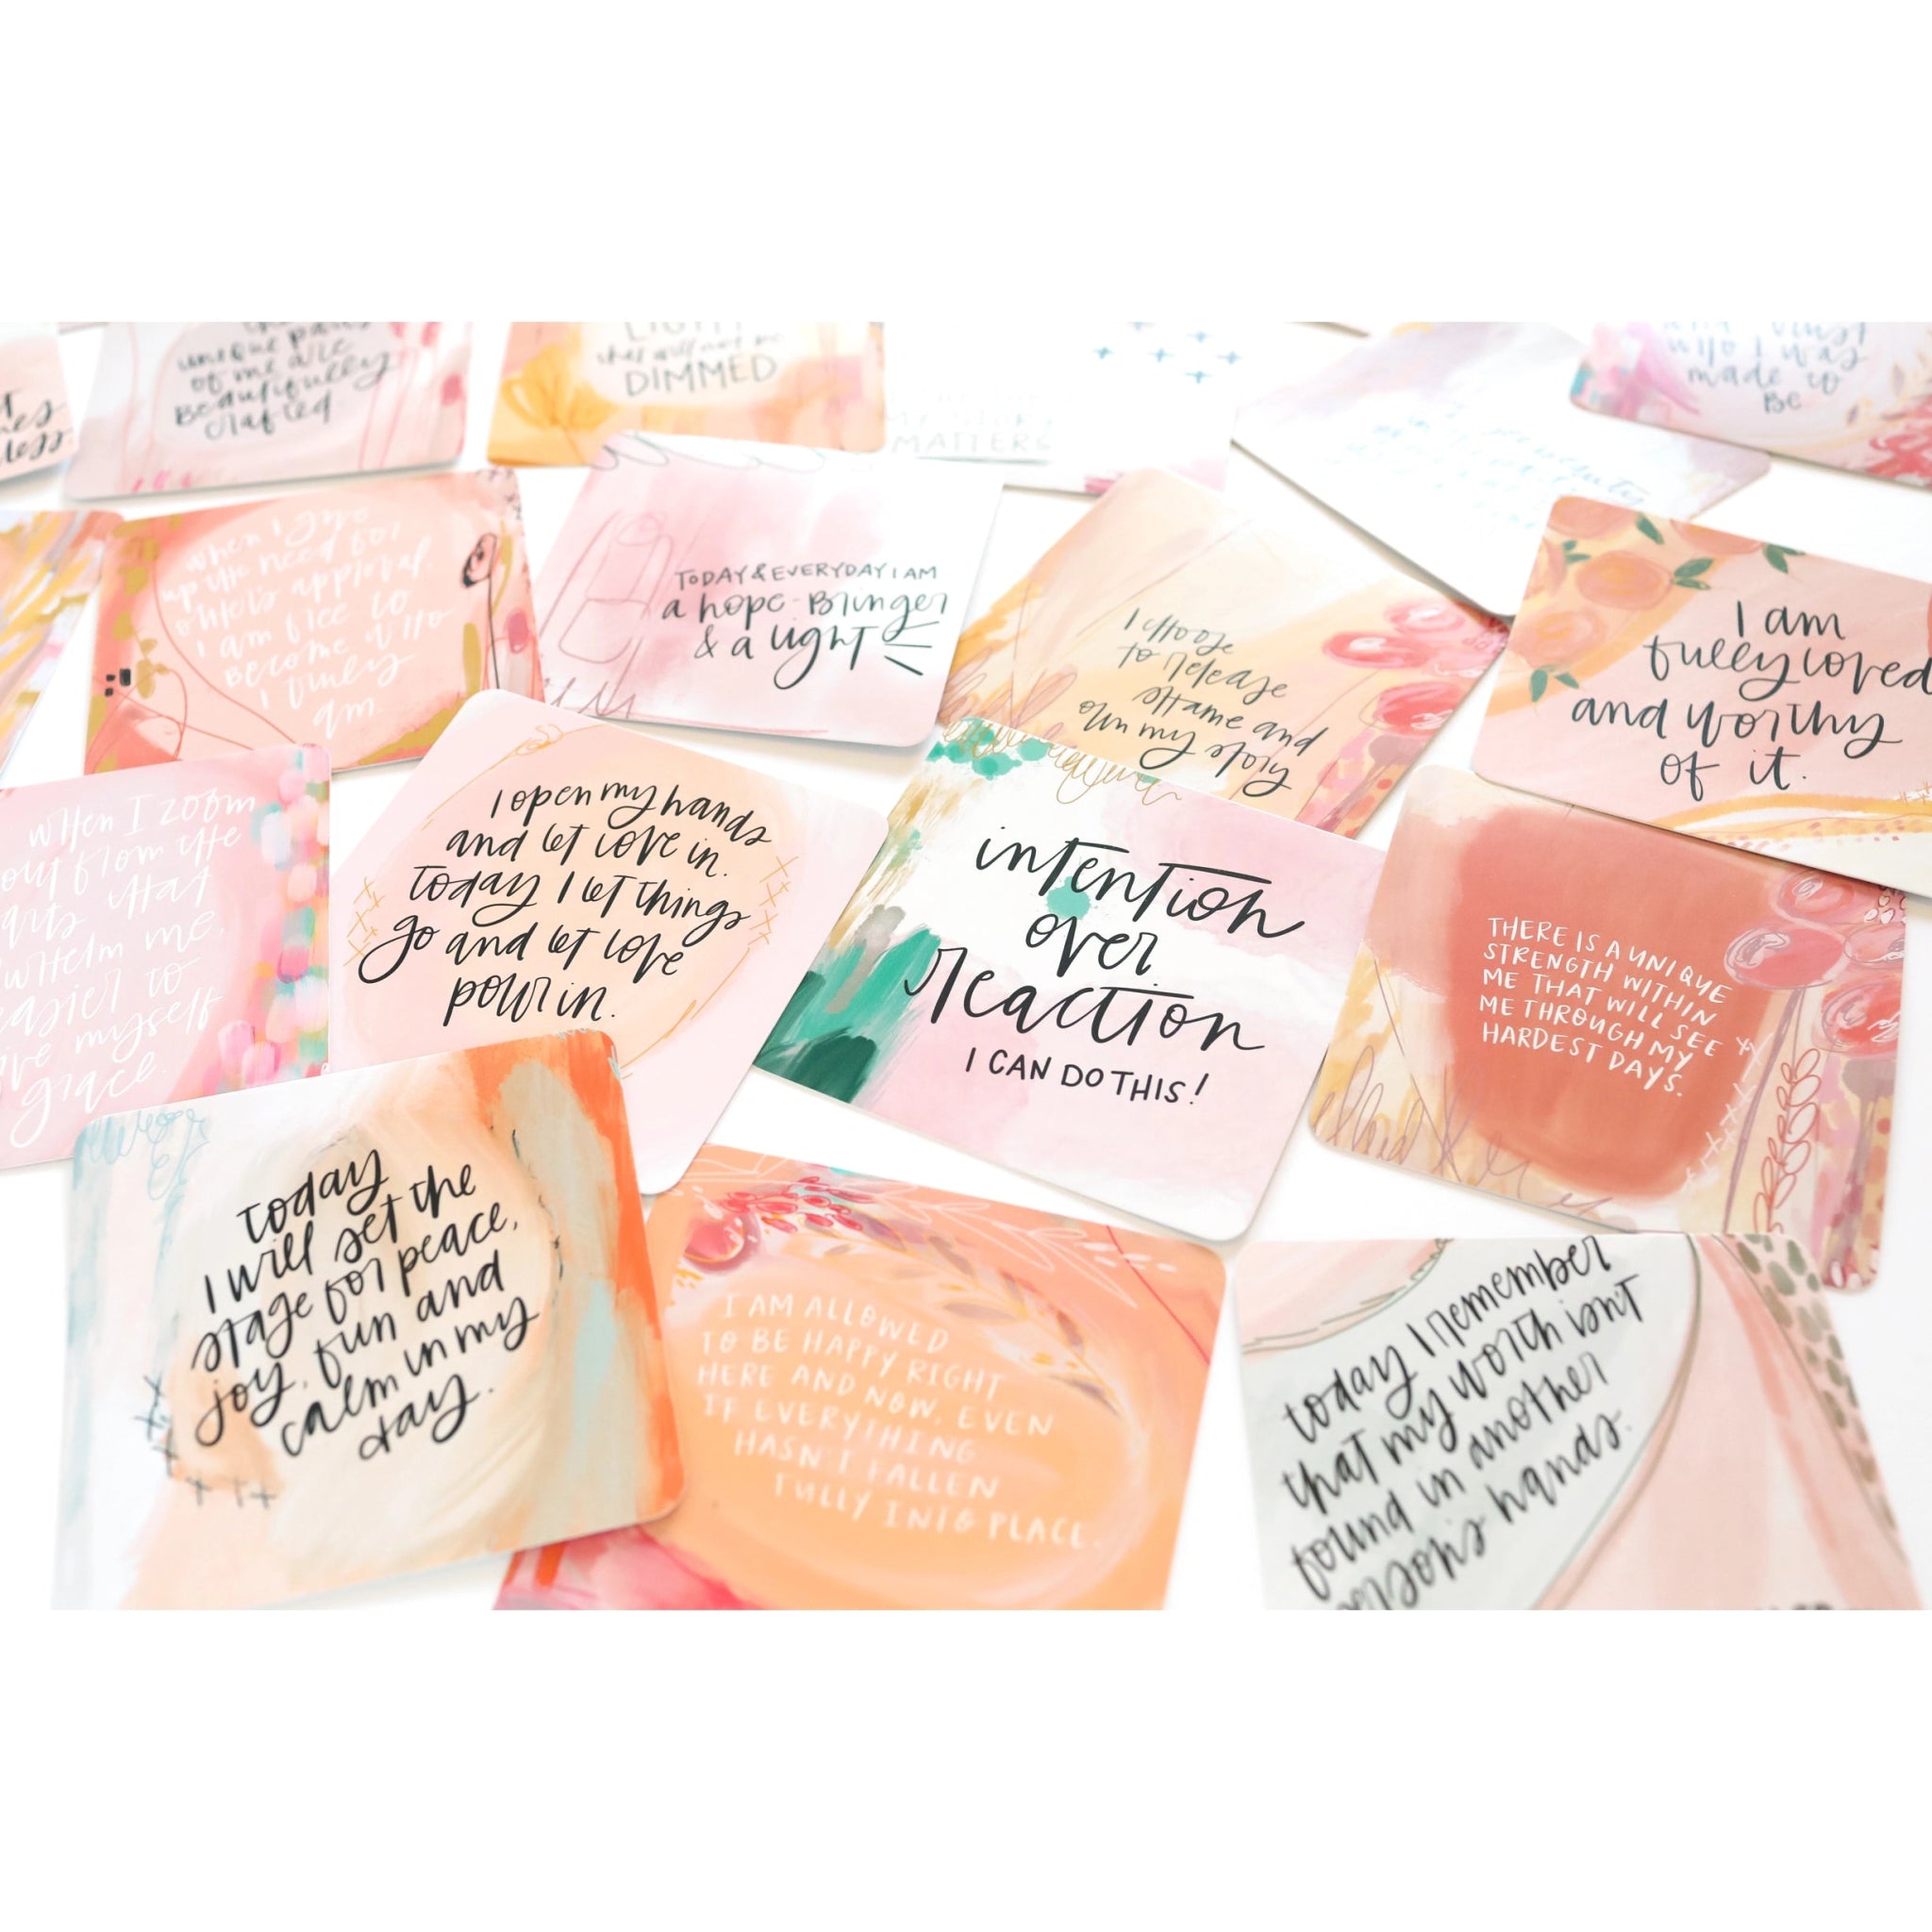 unique parts
of me are
beautifully
crafted
LIGHT
she will not be
DIMMED
MY STORY
MATTERS
who I was
made to
Be
when I give
up the need for
other's approval,
I am free to
become who
I truly
am.
TODAY & EVERYDAY I AM
a hope-Bringer
& a light
I choose
to release
shame and
own my story
I am
fully loved
and worthy
of it.
when I zoom
out from the
that
me,
easier to
myself
grace.
I open my hands
and let love in.
today I let things
go and let love
pour in.
intention
over
reaction
I CAN DO THIS!
THERE IS A UNIQUE
STRENGTH WITHIN
ME THAT WILL SEE
ME THROUGH MY
HARDEST DAYS.
today
I will set the
stage for peace,
joy, fun and
calm in my
day.
I AM ALLOWED
TO BE HAPPY RIGHT
HERE AND NOW, EVEN
IF EVERYTHING
HASN'T FALLEN
FULLY INTO PLACE.
today I remember
that my worth isn't
found in another
person's hands.